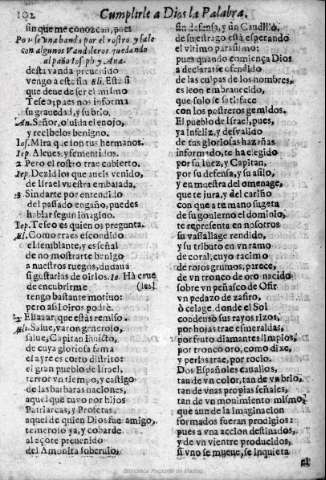 102
Cumplirle a Dios la Palabra.
sin que me conozcan, pues
Po se vna banda por el rostro, y sale
con algunos Vandoleros quedando
al paño Iosph, y Ana.
desta vanda preuenido
vengo a este sin
que deue de ser el mismo
Teseo; pues nos informa
su grauedad, y su brio.
An. Señor, oluida el enojo,
y recibelos benigno.
Ios. Mira que son tus hermanos.
Iep. Aleues, y fementidos.
2. Pero el rostro trae cubierto.
Iep. Dezid los que aueis venido,
de Israel vuestra embaxada,
Sin darte por entendido
del passado engaño, puedes
hablar segun imagino.
Iep. Teseo es quien os pregunta.
Como traes escondido
el semblante, y es señal
de no mostrarte benigo
a nuestros ruegos, dudaua
si gustarias de oirlos. Ha cruel
de encubrirme
tengo bastante motiuo:
pero assi oiros podrè.
Eliazar, que estàs remiso.
Salue, varon generoso,
salue, Capitan Inuicto,
de cuya gloriosa fama
el ayre es corto distrito:
el gran pueblo de Israel,
terror vn tiempo, y castigo
de las barbaras naciones,
aquel que tuvo por hijos
Patriarcas, y Profetas,
aquel de quien Dios fue amigo,
temeroso ya, y cobarde
al açote preuenido
del Amonita soberuio,
sin defensa, y sin Caudillo.
de su estrago està esperando
el vltimo parasismo:
pues quando comiença Dios
a declararse ofendido
de las culpas de los nombres,
es leon embrauecido,
que solo se satisface
con los postreros gemidos.
El pueblo de Israel, pues,
ya infeliz, y desvalido
de tus gloriosas hazañas
informado, te ha elegido
por su Iuez, y Capitan,
por su defensa, y su asilo,
y en muestra del omenage,
que te jura, y del cariño
con que a tu mano sugeta
de su gouierno el dominio,
te representa en nosotros
su vassallage rendido,
y su tributo en vn ramo
de coral, cuyo racimo
de roxos grumos, parece,
de vn tronco de oro nacido
sobre vn peñasco de Ofir
vn pedazo de zafiro,
ò celage, donde el Sol
condensò sus rayos rizos,
por hojas trae esmeraldas,
por fruto diamantes limpios,
por tronco oro, como dixe,
y perlas trae, por rocio.
Dos Españoles cauallos,
tan de vn color, tan de vn brio,
tan de vnas propias señales,
tan de vn mouimiento mismo,
que aun de la imaginacion
formados fueran prodigios:
pues a vna accion destinados,
y de vn vientre producidos,
si vno se mueue, se inquieta
el
Biblioteca Regional de Madrid